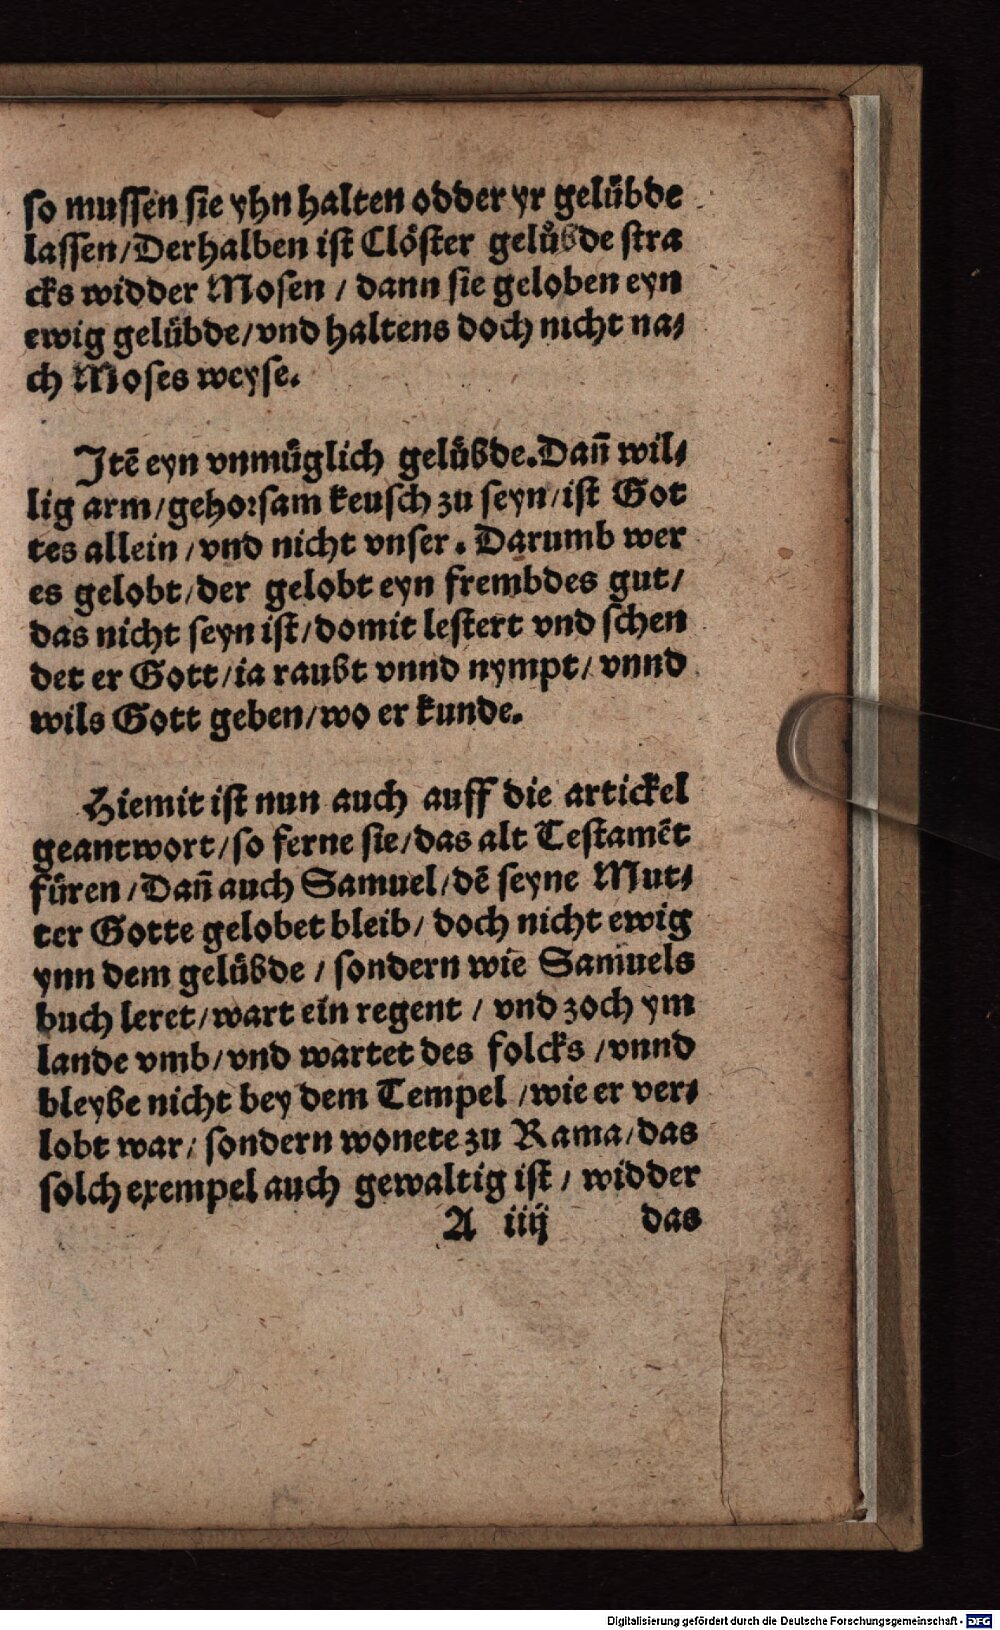 so mussen sie yhn halten odder yr gelübde
lassen/Derhalben ist Clöster gelůbde stra
cks widder Mosen / dann sie geloben eyn
ewig gelübde/vnd haltens doch nicht na⸗
ch Moses weyse.
Jtē eyn vnmüglich gelübde.Dan̄ wil⸗
lig arm/gehorsam keusch zu seyn/ist Got
tes allein/vnd nicht vnser. Darumb wer
es gelobt/der gelobt eyn frembdes gut/
das nicht seyn ist/domit lestert vnd schen
det er Gott/ia raubt vnnd nympt/ vnnd
wils Gott geben/wo er kunde.
Hiemit ist nun auch auff die artickel
geantwort/so ferne sie/das alt Testamēt
füren/Dan̄ auch Samuel/dē seyne Mut⸗
ter Gotte gelobet bleib/ doch nicht ewig
ynn dem gelübde / sondern wie Samuels
buch leret/wart ein regent / vnd zoch ym
lande vmb/vnd wartet des folcks /vnnd
bleybe nicht bey dem Tempel /wie er ver⸗
lobt war/ sondern wonete zu Rama/das
solch exempel auch gewaltig ist / widder
A iiij das
Digitalisierung gefördert durch die Deutsche Forschungsgemeinschaft - DFG